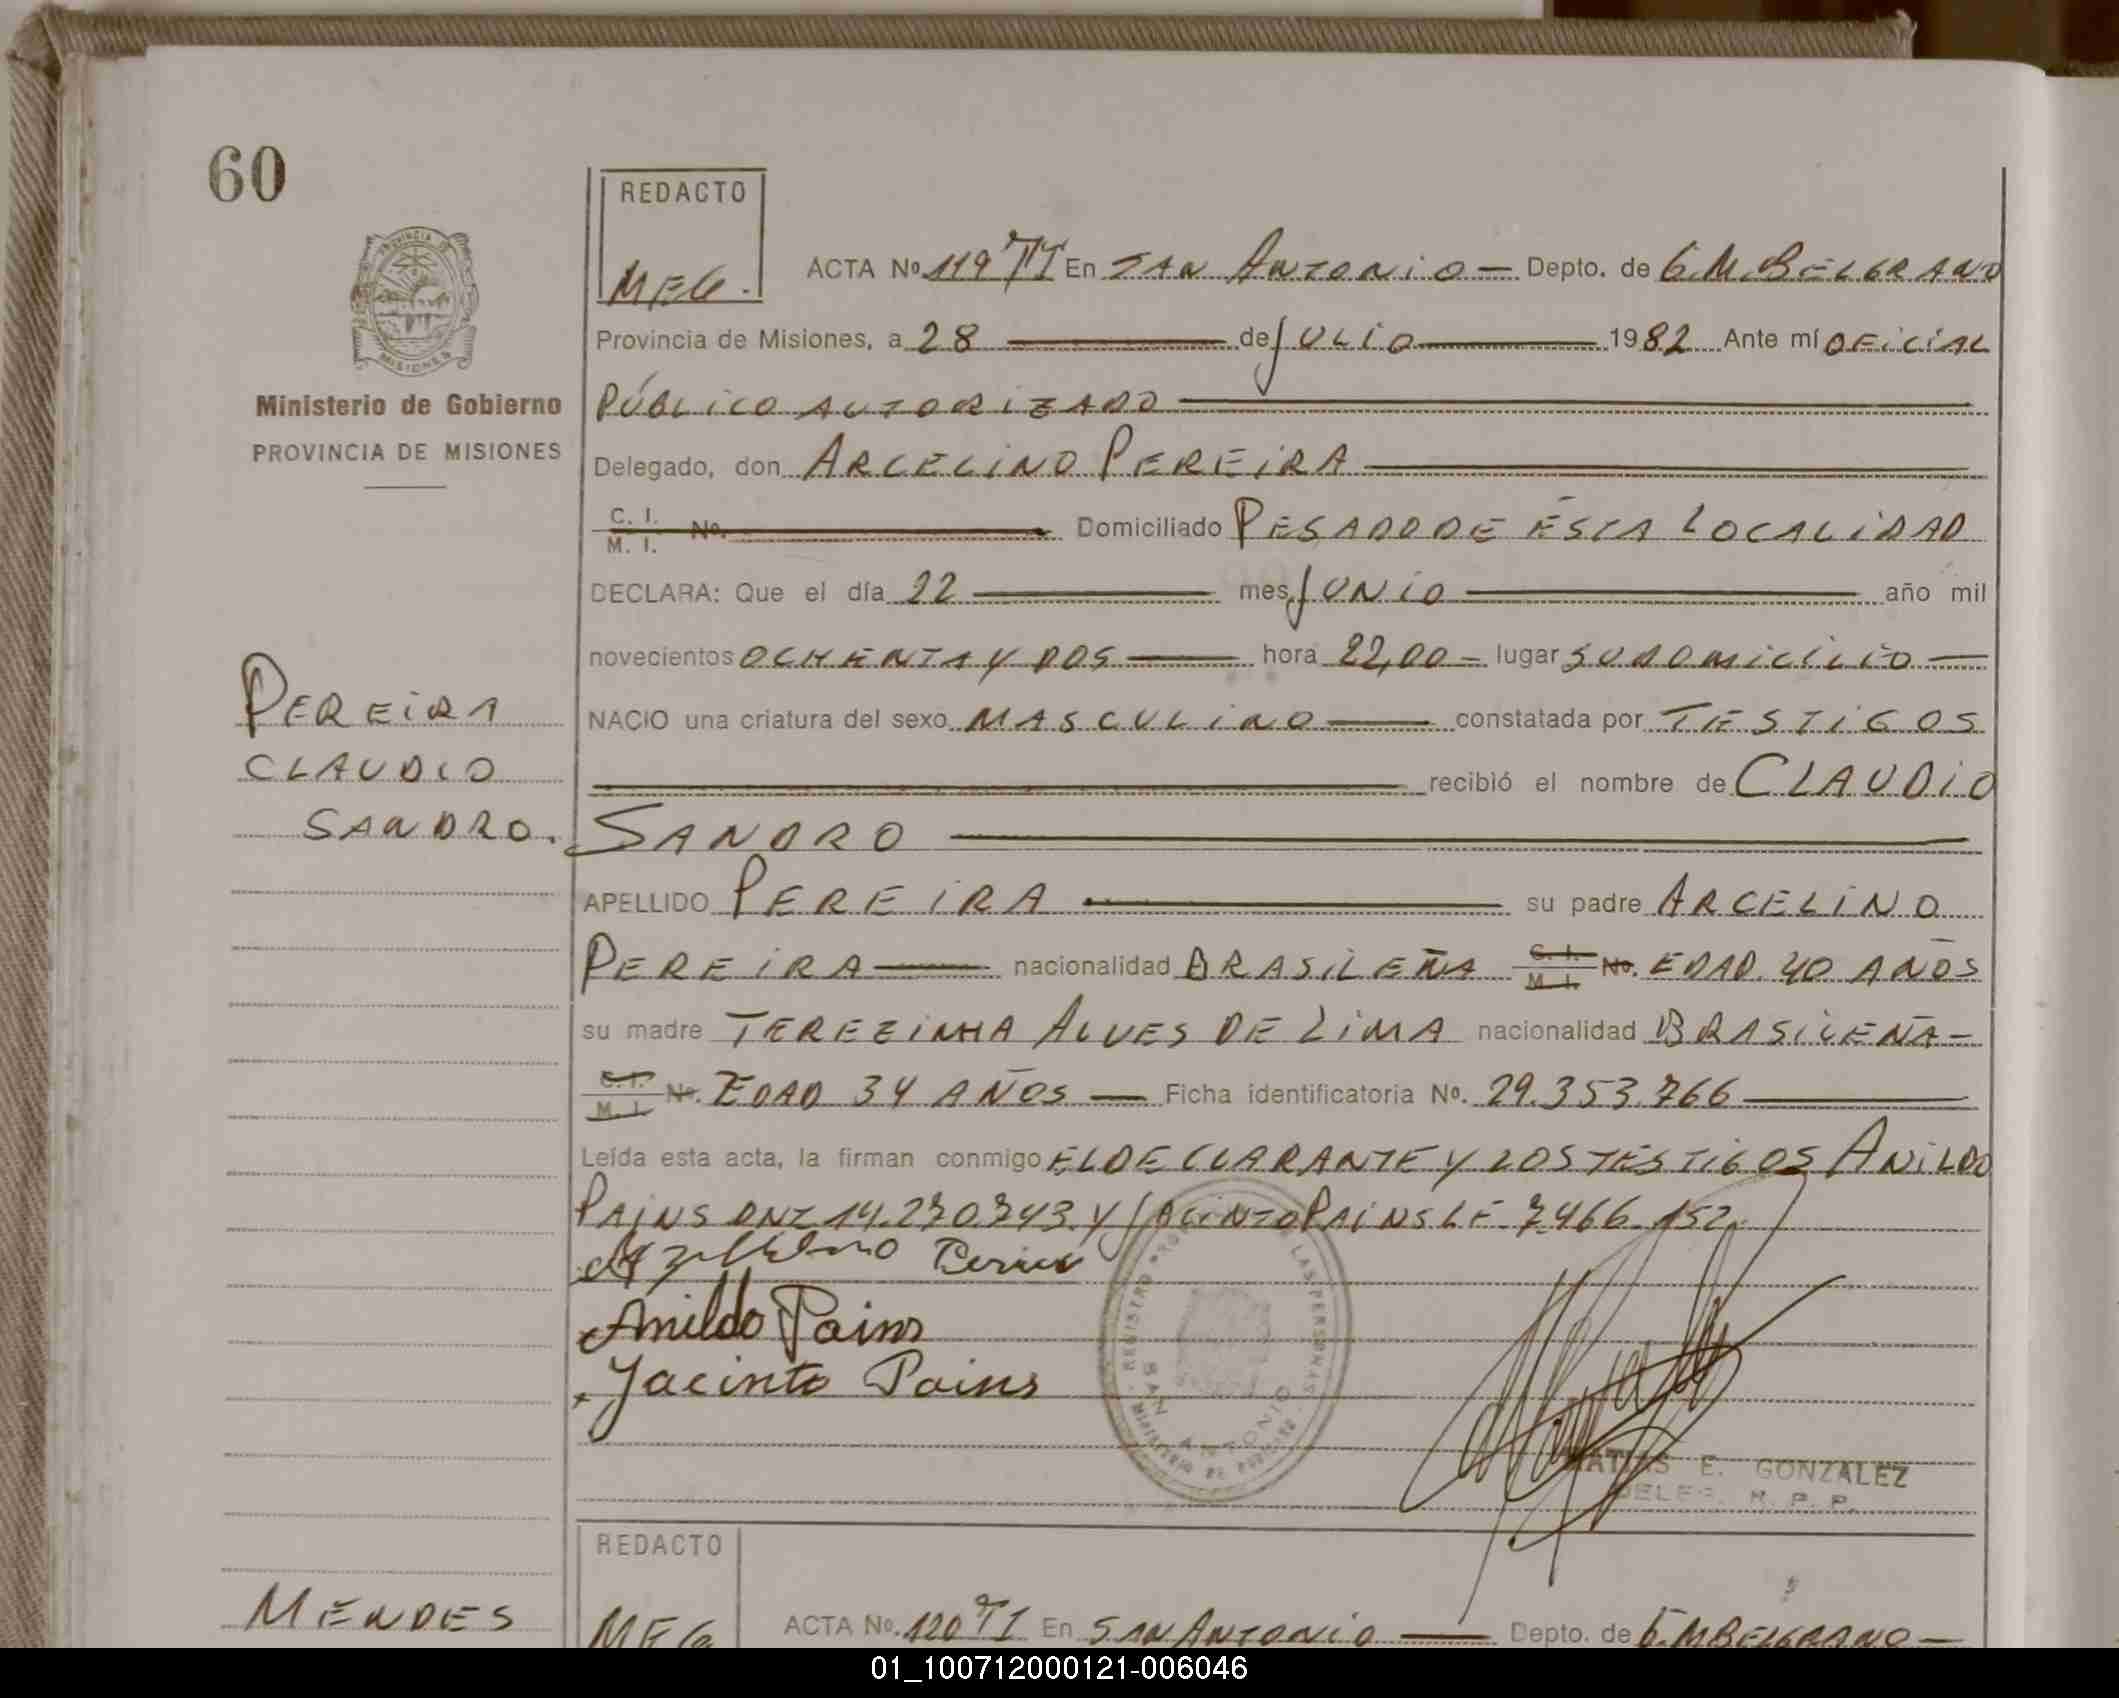 60
REDACTO
MEG.
ACTA Nº 119 TI En SAN ANTONIO — Depto. de G.M.BELGRANO
Provincia de Misiones, a 28 de JULIO 1982 Ante mí OFICIAL
PÚBLICO AUTORIZADO
Ministerio de Gobierno
PROVINCIA DE MISIONES
Delegado, don ARCELINO PEREIRA
C. I. M. I. Nº. Domiciliado PESADO DE ÉSTA LOCALIDAD
DECLARA: Que el día 22 mes JUNIO año mil
novecientos OCHENTA Y DOS hora 22,00 - lugar SU DOMICILIO
PEREIRA
CLAUDIO
SANDRO.
NACIO una criatura del sexo MASCULINO constatada por TESTIGOS
recibió el nombre de CLAUDIO
SANDRO
APELLIDO PEREIRA su padre ARCELINO
PEREIRA nacionalidad BRASILEÑA C. I. M. I. Nº. EDAD 40 AÑOS
su madre TEREZINHA ALVES DE LIMA nacionalidad BRASILEÑA -
C. I. M. I. Nº. EDAD 34 AÑOS — Ficha identificatoria Nº. 29.353.766
Leída esta acta, la firman conmigo EL DECLARANTE Y LOS TESTIGOS ANILDO
PAINS DNI 14.270.743 Y JACINTO PAINS LE 7.466.152
Anildo Pains
Jacinto Pains
REGISTRO PROV. DE LAS PERSONAS
SAN ANTONIO
MATIAS E. GONZALEZ
DELEG. R. P. P.
REDACTO
MENDES
MEG
ACTA Nº. 120 TI En SAN ANTONIO — Depto. de G.M.BELGRANO —
01_100712000121-006046